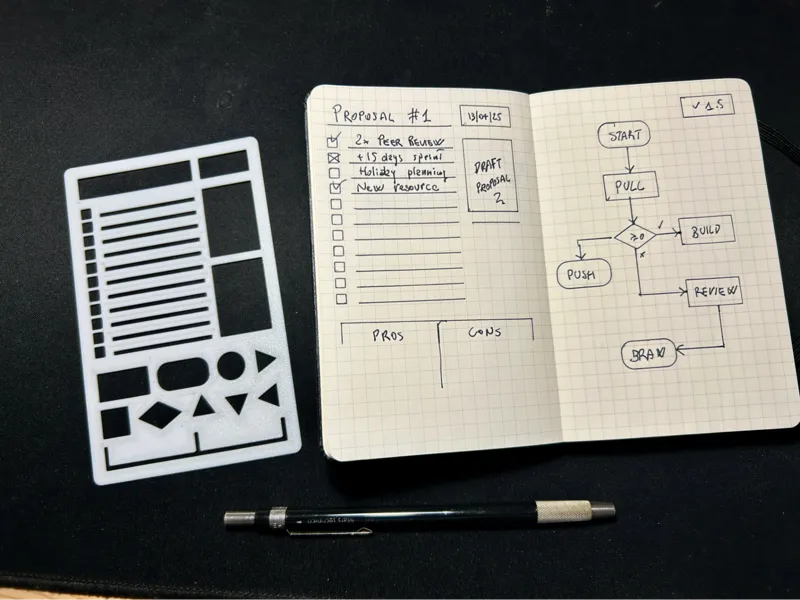 PROPOSAL #1
13/04/25
2x PEER REVIEW
+15 days sprint
Holiday planning
New resource
DRAFT
PROPOSAL
2
PROS
CONS
V 1.5
START
PULL
≥0
BUILD
PUSH
REVIEW